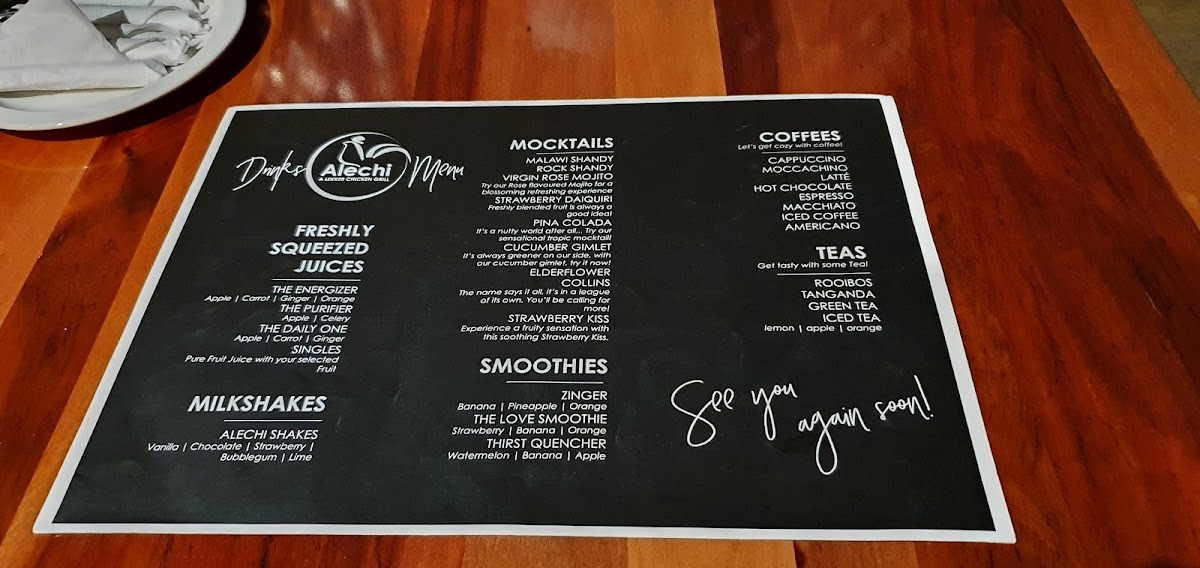 Drinks
Alechi
A LEKKER CHICKEN GRILL
Menu
FRESHLY
SQUEEZED
JUICES
THE ENERGIZER
Apple | Carrot | Ginger | Orange
THE PURIFIER
Apple | Celery
THE DAILY ONE
Apple | Carrot | Ginger
SINGLES
Pure Fruit Juice with your selected
Fruit
MILKSHAKES
ALECHI SHAKES
Vanilla | Chocolate | Strawberry |
Bubblegum | Lime
MOCKTAILS
MALAWI SHANDY
ROCK SHANDY
VIRGIN ROSE MOJITO
Try our Rose flavoured Mojito for a
blossoming refreshing experience
STRAWBERRY DAIQUIRI
Freshly blended fruit is always a
good idea!
PINA COLADA
It's a nutty world after all... Try our
sensational tropic mocktail!
CUCUMBER GIMLET
It's always greener on our side, with
our cucumber gimlet, try it now!
ELDERFLOWER
COLLINS
The name says it all, it's in a league
of its own. You'll be calling for
more!
STRAWBERRY KISS
Experience a fruity sensation with
this soothing Strawberry Kiss.
SMOOTHIES
ZINGER
Banana | Pineapple | Orange
THE LOVE SMOOTHIE
Strawberry | Banana | Orange
THIRST QUENCHER
Watermelon | Banana | Apple
COFFEES
Let's get cozy with coffee!
CAPPUCCINO
MOCCACHINO
LATTÉ
HOT CHOCOLATE
ESPRESSO
MACCHIATO
ICED COFFEE
AMERICANO
TEAS
Get tasty with some Tea!
ROOIBOS
TANGANDA
GREEN TEA
ICED TEA
lemon | apple | orange
See you
again soon!